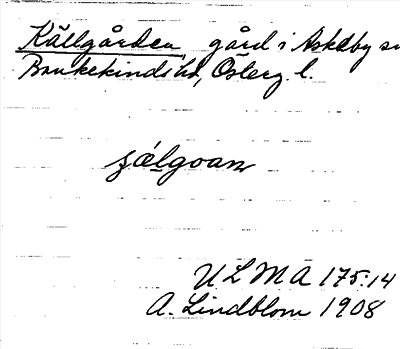 Källgården, gård i Askeby sn
Bankekinds hd, Österg. l.
ULMA 175:14
A. Lindblom 1908